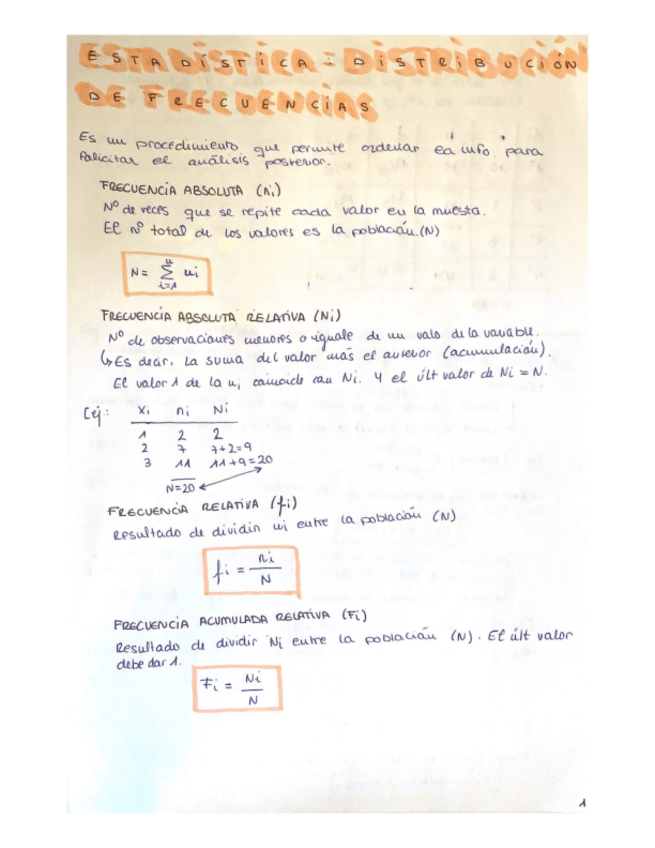 ESTADÍSTICA: DISTRIBUCIÓN
DE FRECUENCIAS
Es un procedimiento que permite ordenar la info para
falicitar el análisis posterior.
FRECUENCIA ABSOLUTA (ni)
Nº de veces que se repite cada valor en la muesta.
El nº total de los valores es la población. (N)
N = ∑ ni
i=1
FRECUENCIA ABSOLUTA RELATIVA (Ni)
Nº de observaciones menores o iguale de un valo de la variable.
↳ Es decir, la suma del valor más el anterior (acumulación).
El valor 1 de la ni coincide con Ni. Y el últ valor de Ni = N.
Ej: Xi ni Ni
1 2 2
2 7 7+2=9
3 11 11+9=20
N=20
FRECUENCIA RELATIVA (fi)
Resultado de dividir ni entre la población (N)
fi = ni
N
FRECUENCIA ACUMULADA RELATIVA (Fi)
Resultado de dividir Ni entre la población (N). El últ valor
debe dar 1.
Fi = Ni
N
1